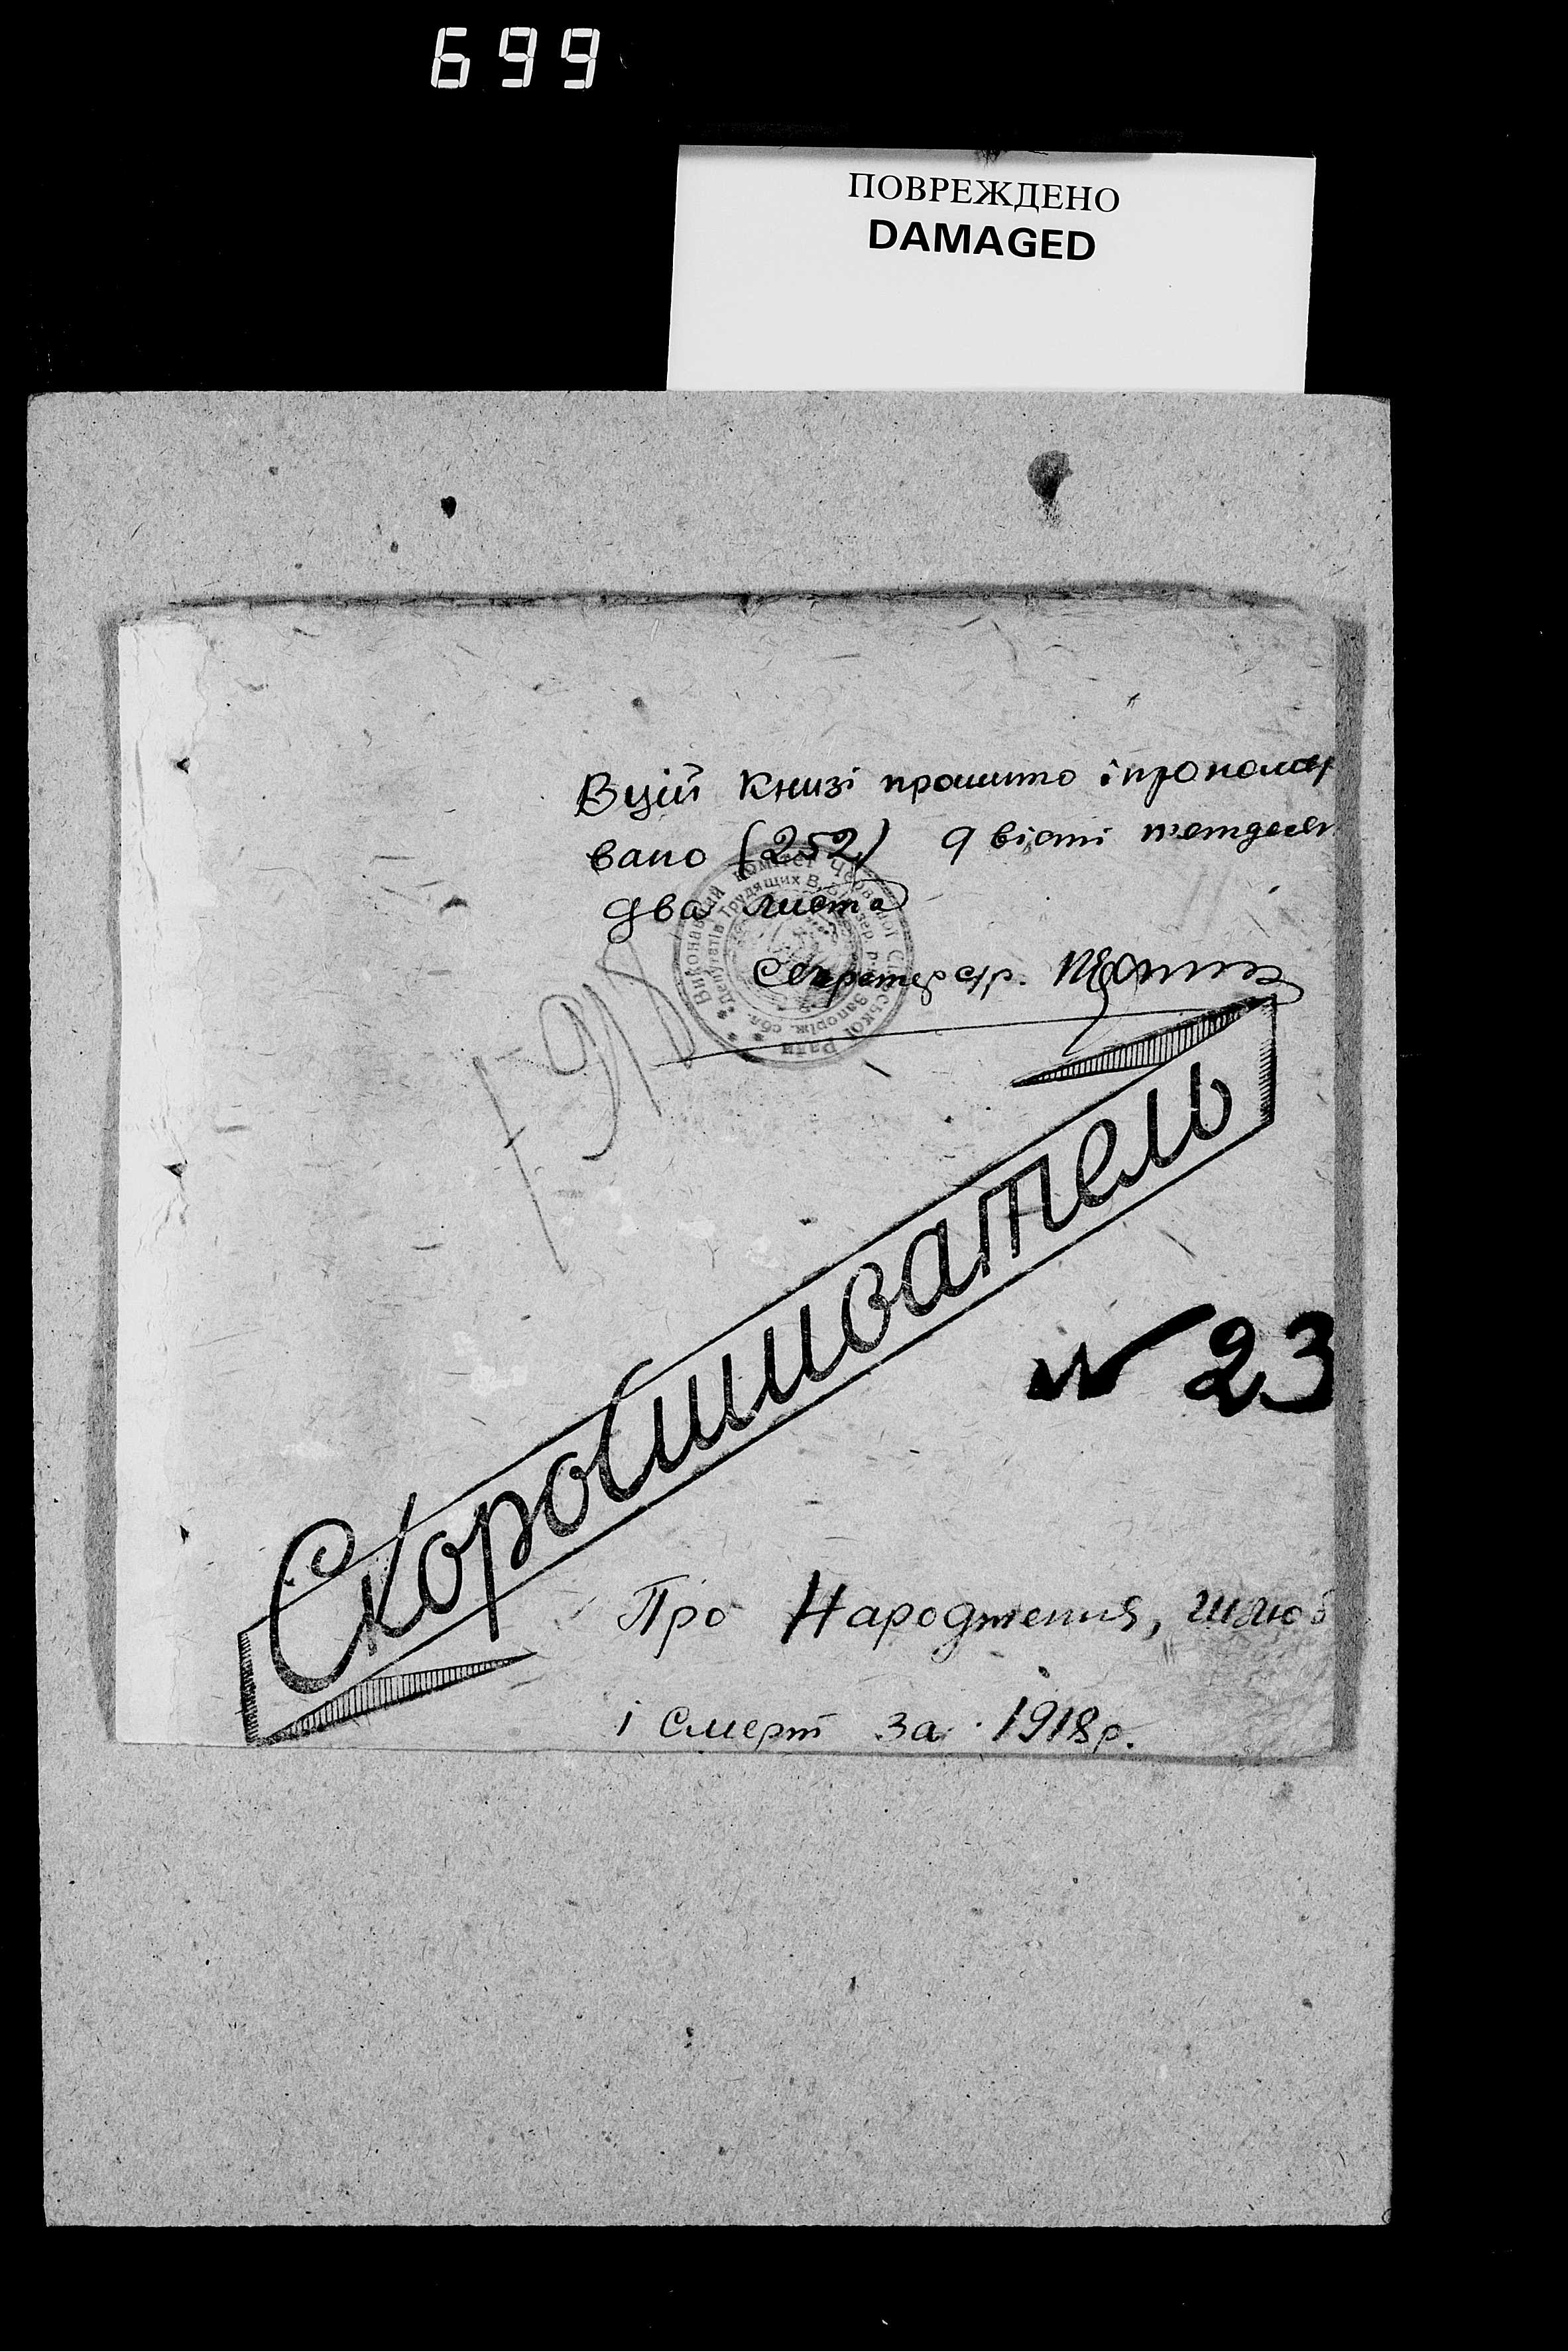 699
ПОВРЕЖДЕНО
DAMAGED
В цій Книзі прошито і прономер
вано (252) двісті п'ятдесят
два листа
Секретар с/р.
Виконавчий Комітет Сільської Ради
Депутатів Трудящих В. Білозер. р. Запоріж. обл.
1918
Скоросшиватель
№ 23
Про Народження, шлюб
і смерт за 1918р.